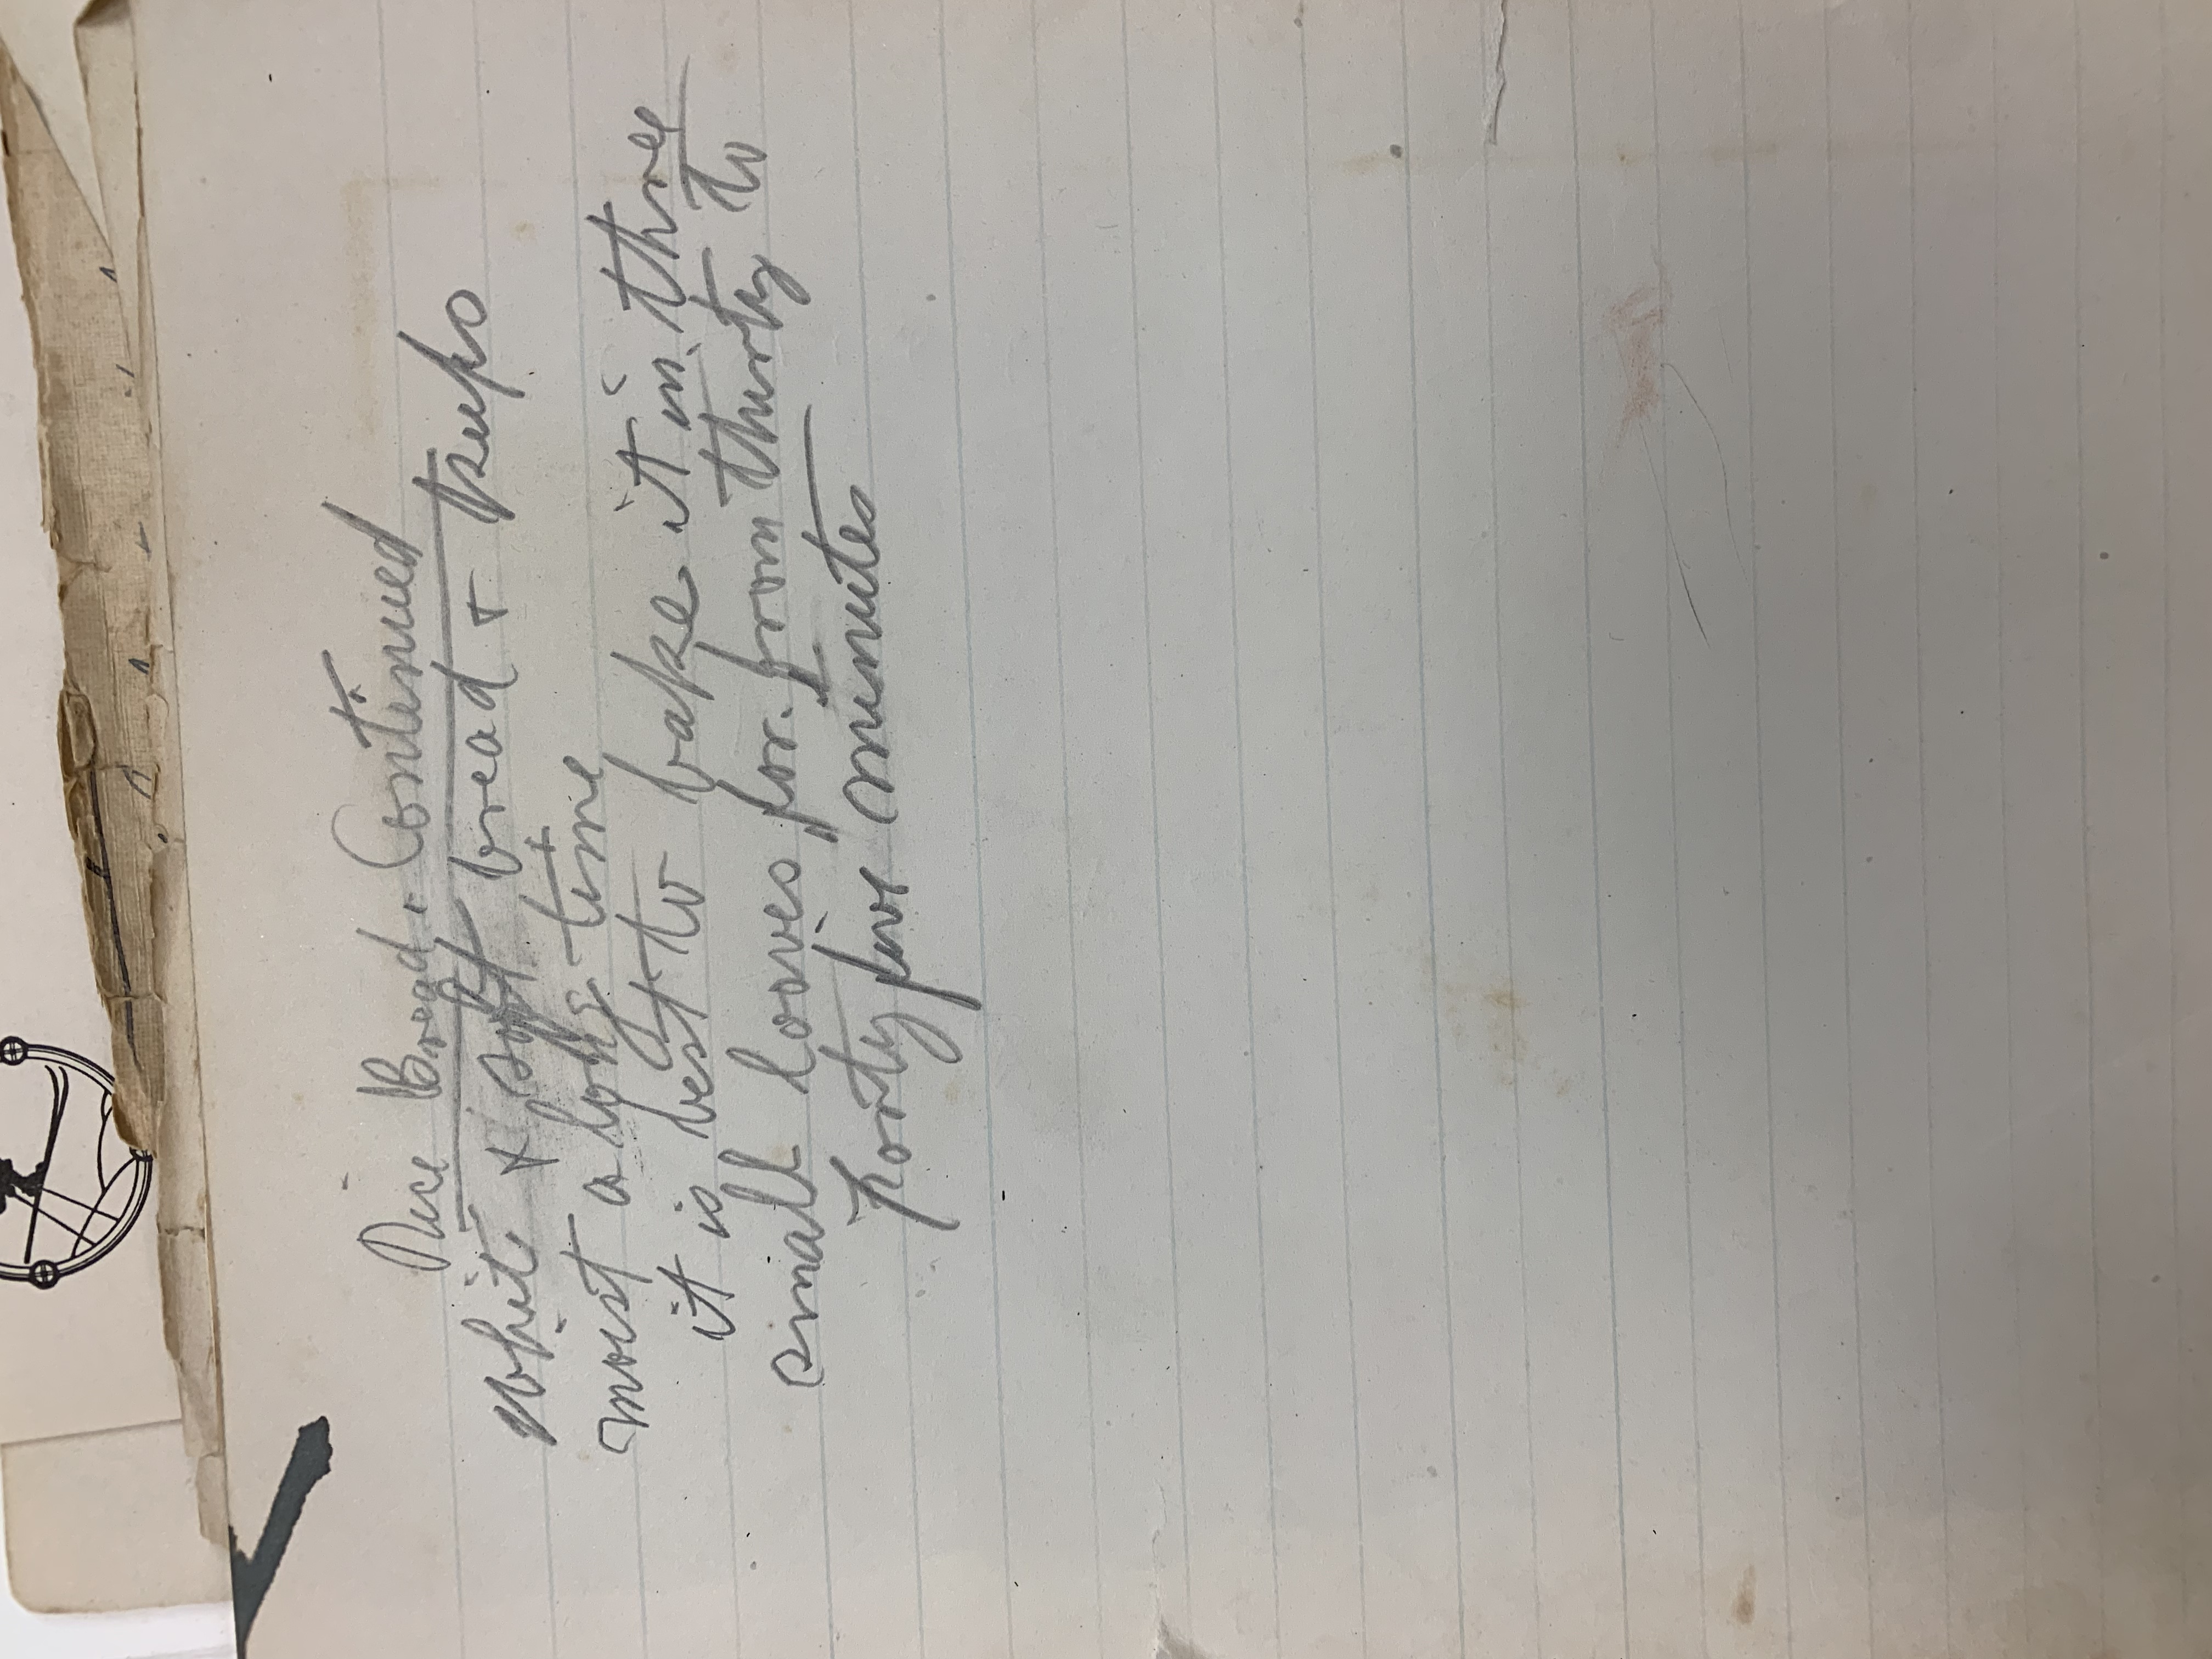 Rice Bread. Continued
White & soft bread & keeps
moist a long time
it is best to bake it in three
small loaves for. from thirty to
Forty five minutes